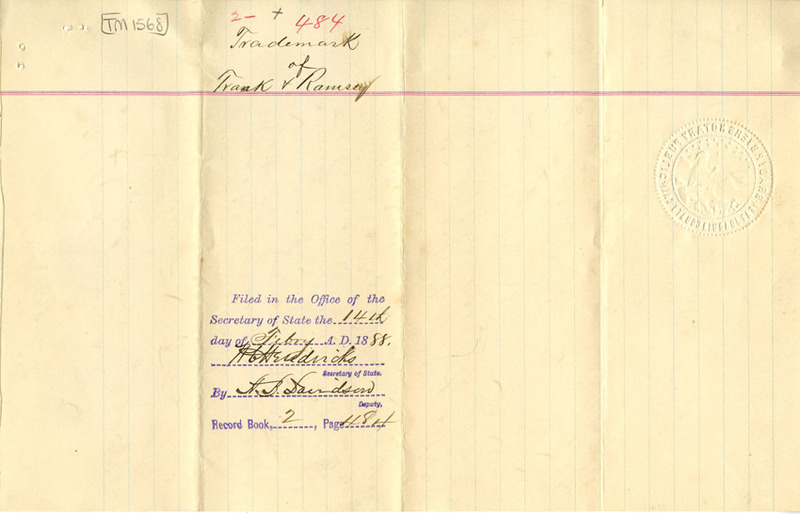 TM 1568
2- + 484
Trademark
of
Frank & Ramsey
Filed in the Office of the
Secretary of State the 14th
day of Febry A. D. 1888.
W C Hendricks
Secretary of State.
By A. B. Davidson
Deputy.
Record Book, 2, Page 484